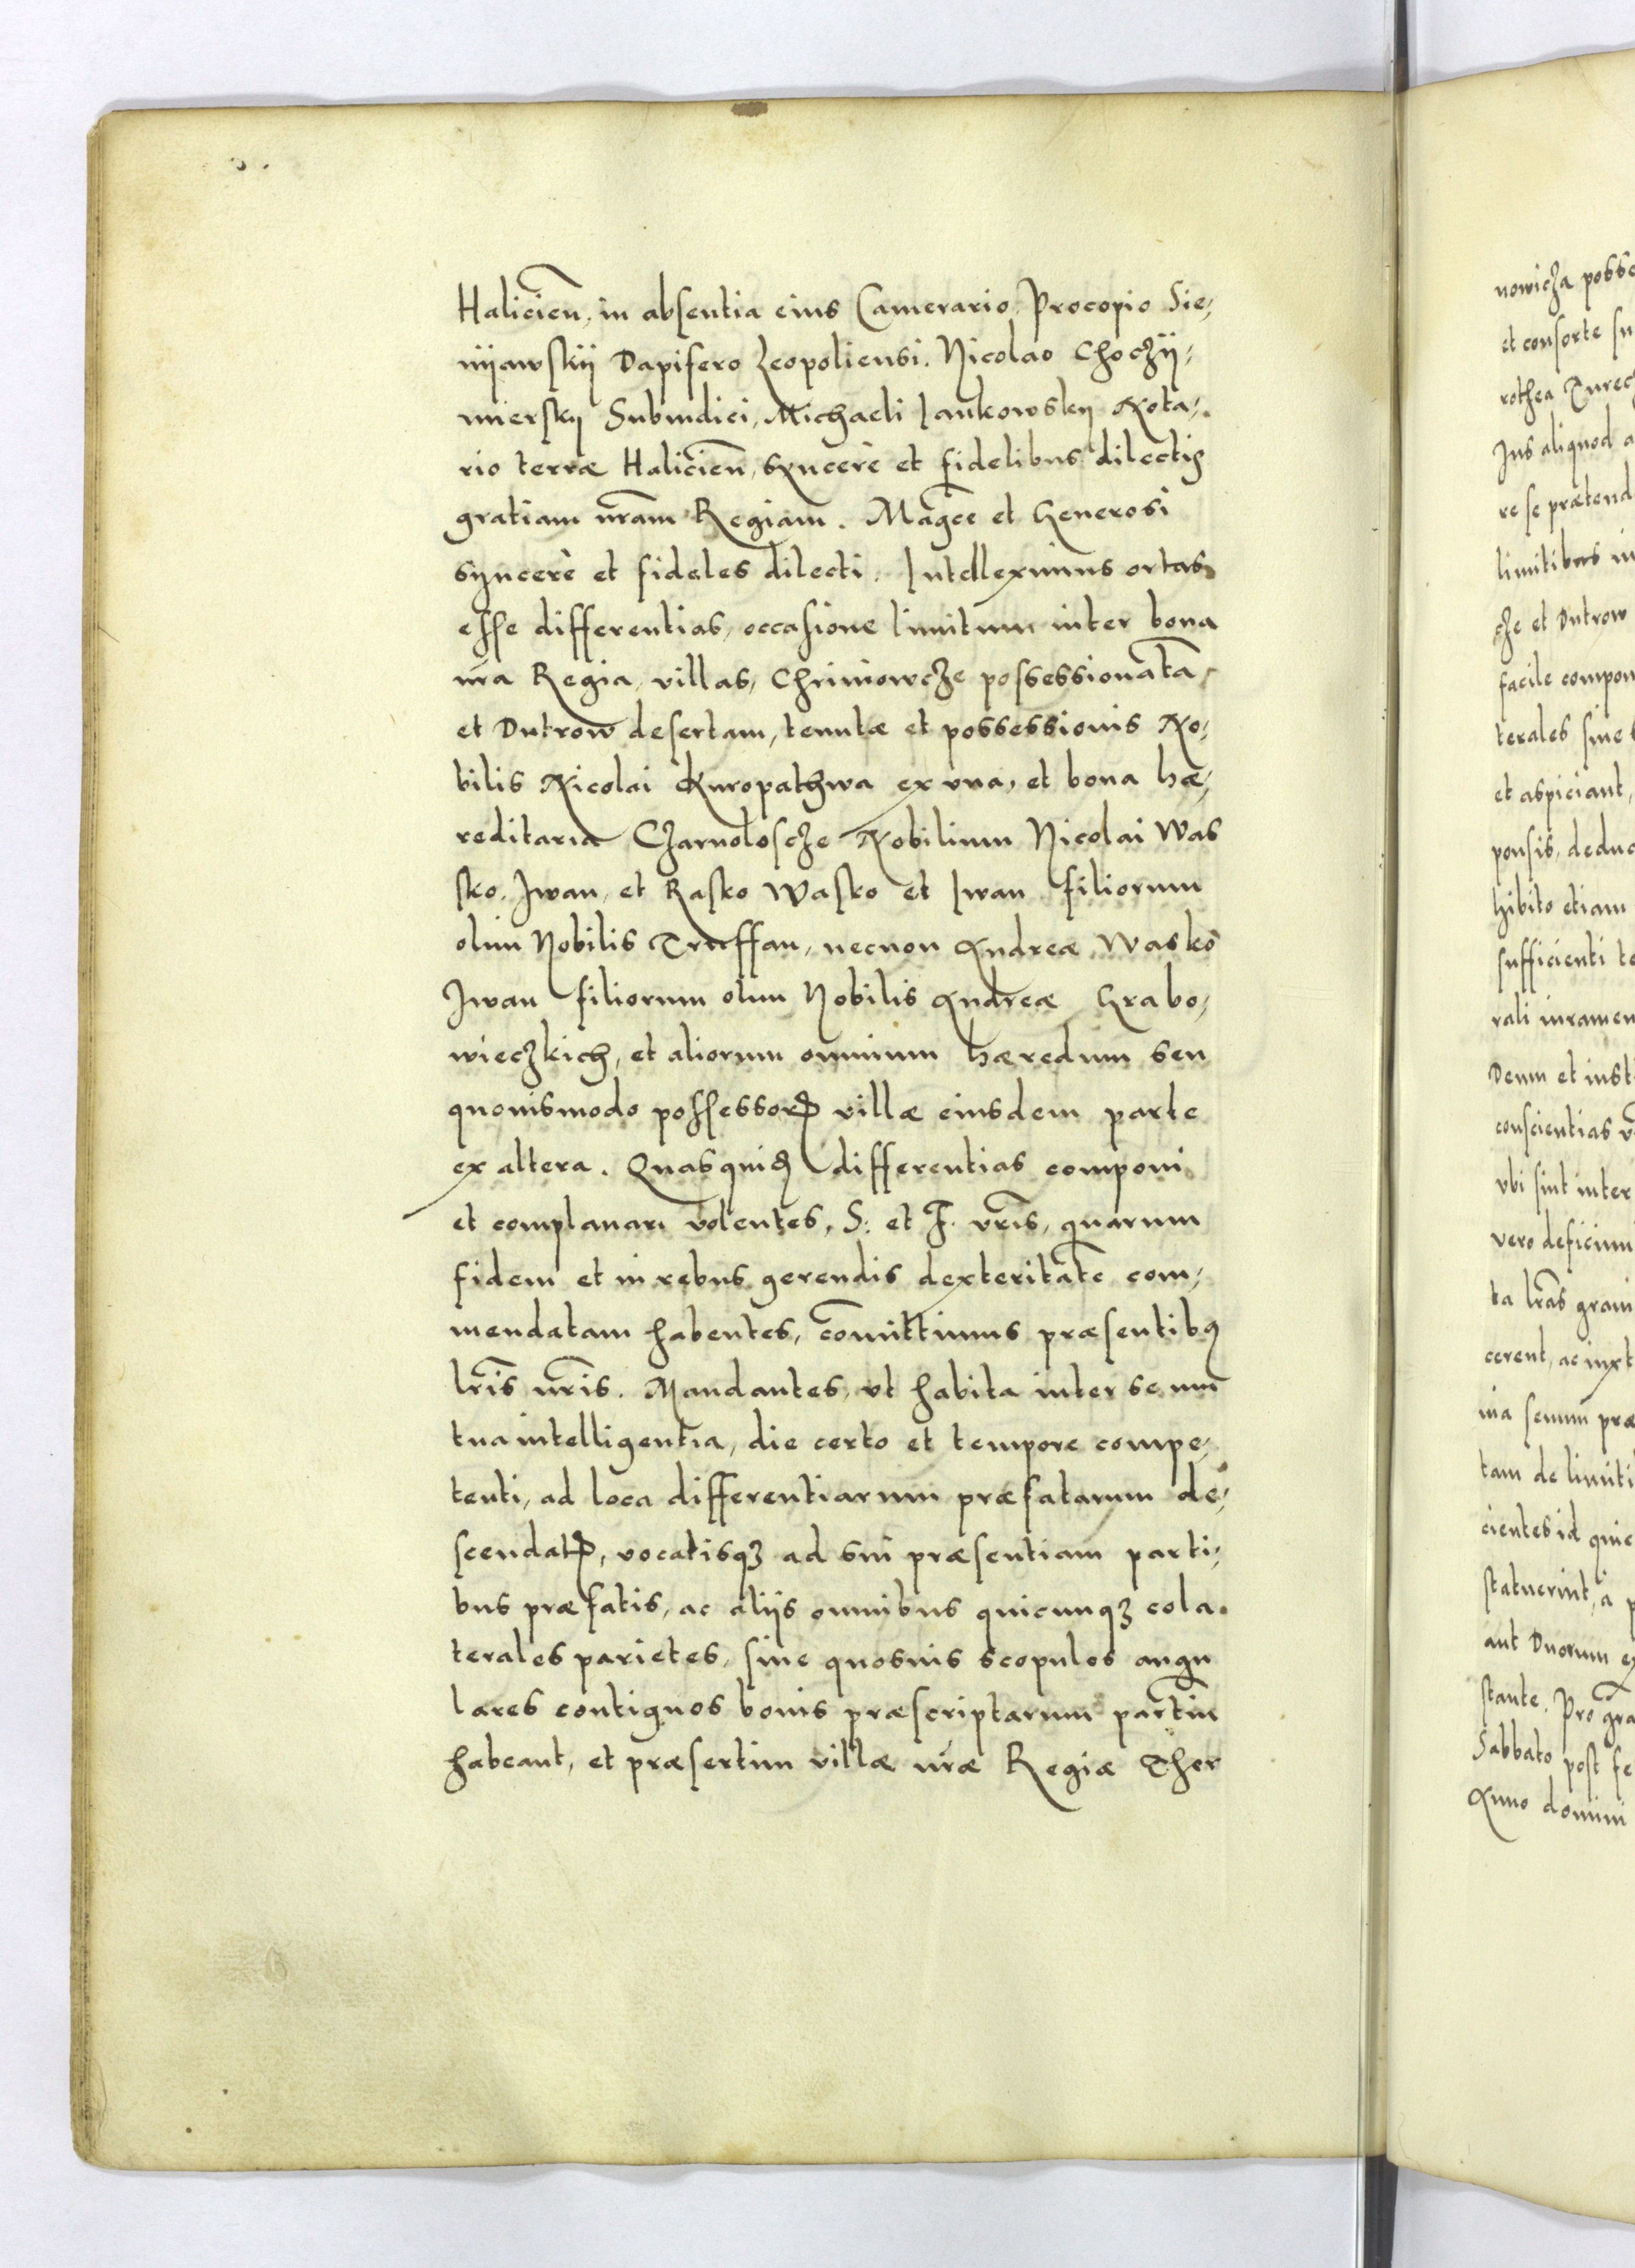 Halicieñ, in absentia eius Camerario, Procopio Sie,
nijawskij Dapifero Leopoliensi. Nicolao Choczij,
mierskij Subiudici, Michaeli Jankowskij Nota,
rio terræ Haliciein̄, syncerè et fidelibus dilectis
gratiam nr̄am Regiam. Mag̅ce et Generosi
syncerè et fideles dilecti. Intelleximus ortas
esse differentias, occasione limitum inter bona
nr̄a Regia, villas, Chrinowcze possessionatā
et Dutrow desertam, tenutæ et possessionis No,
bilis Nicolai Kuropathwa ex vna, et bona hæ,
reditaria Czarnolosche Nobilium Nicolai Was
sko, Iwan, et Rasko Wasko et Iwan filiorum
olim Nobilis Truffan, necnon Andreæ Wasko
Iwan filiorum olim Nobilis Andreæ Grabo,
wieczkich, et aliorum omnium hæredum seu
quouismodo possessorꝝ villæ eiusdem parte
ex altera. Quasquidē differentias componi
et complanari volentes, S: et F. vr̄is, quarum
fidem et in rebus gerendis dexteritatē com,
mendatam habentes, com̄ittimus præsentibꝯ
lr̄is nr̄is. Mandantes, vt habita inter se mu
tua intelligentia, die certo et tempore compe,
tenti, ad loca differentiarum præfatarum de,
scendatꝝ, vocatisqꝫ ad sui præsentiam parti,
bus præfatis, ac alijs omnibus quicunqꝫ cola
terales parietes, siue quosuis scopulos angu
lares contiguos bonis præscriptarum partiū
habeant, et præsertim villæ nr̄æ Regiæ Ther
nowicza posse
et consorte su
rothea Turec
Ius aliquod a
re se prætend
limitibus in
cze et Dutrow
facile compon
terales siue
et aspiciant,
ponsis, dedu
hibito etiam
sufficienti te
rali iuramen
Deum et iust
conscientias v
vbi sint inter
vero deficiun
ta lr̄as grani
cerent, ac iuxt
nia senum præ
tam de limiti
cientes id quic
statuerint, à p
aut Duorum ex
stante. Pro gra
Sabbato post fe
Anno domini